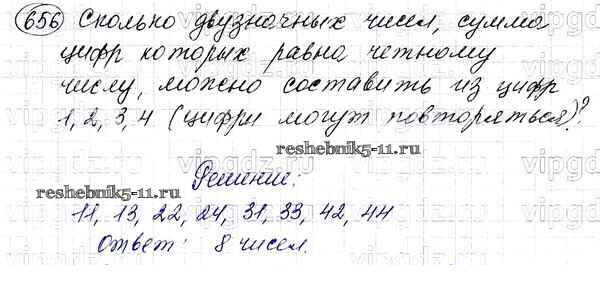 656 Сколько двузначных чисел, сумма
цифр которых равна четному
числу, можно составить из цифр
1, 2, 3, 4 (цифры могут повторяться)?
reshebnik5-11.ru
Решение:
reshebnik5-11.ru
11, 13, 22, 24, 31, 33, 42, 44
Ответ: 8 чисел.
vipgdz.ru